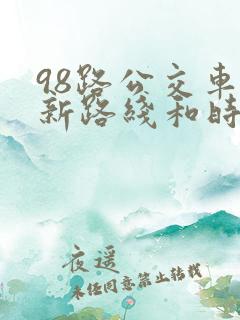 98路公交车
新路线和时
夜遥
未经同意禁止转载